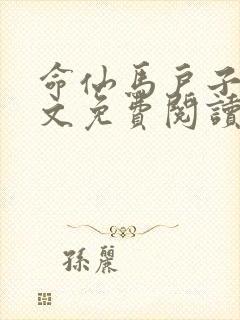 命仙馬戶子
文免費閱讀
孫麗